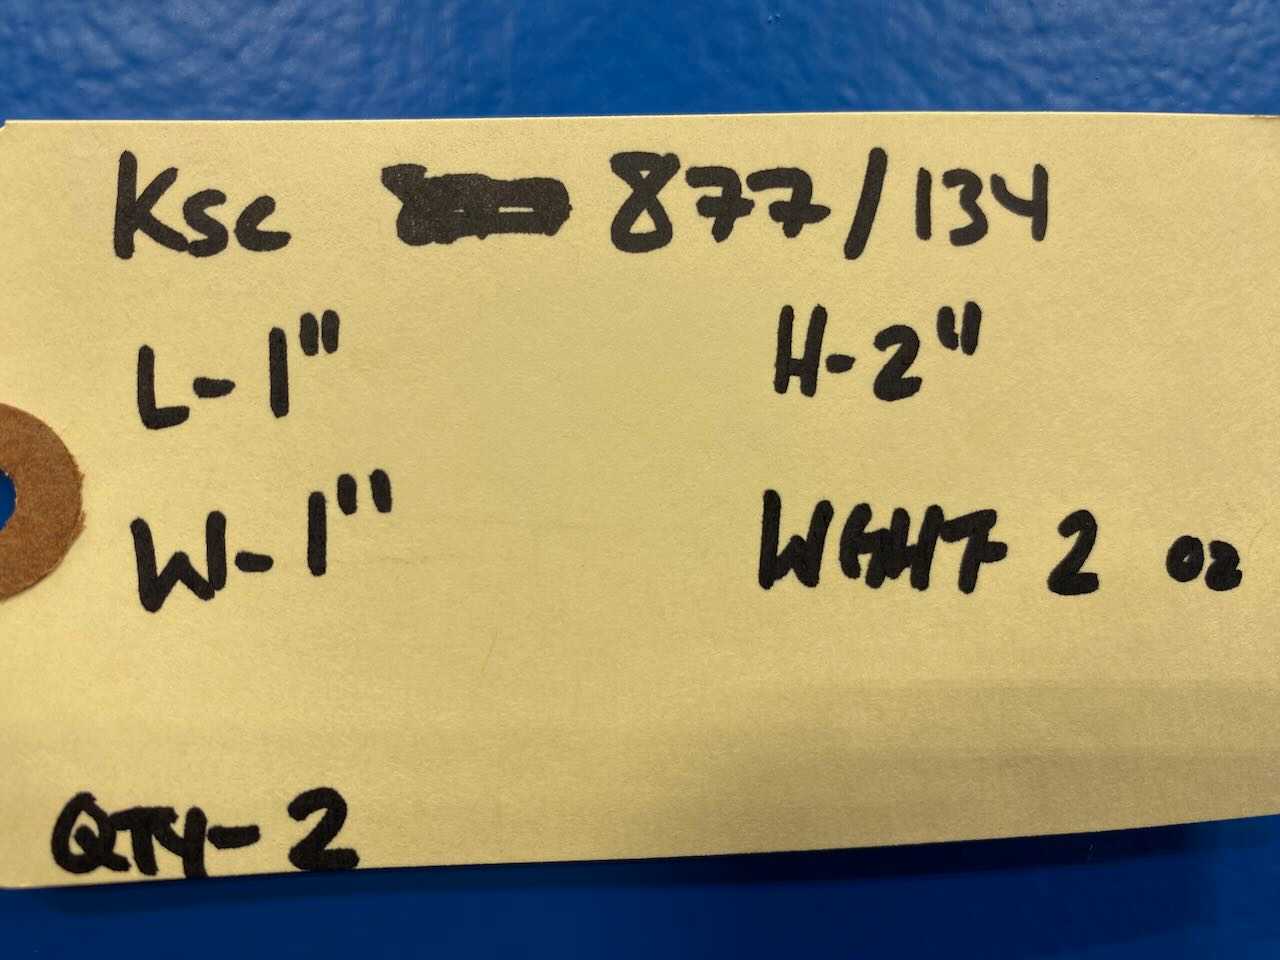 Ksc 877/134
L-1" H-2"
W-1" WGHT 2 oz
QTY-2